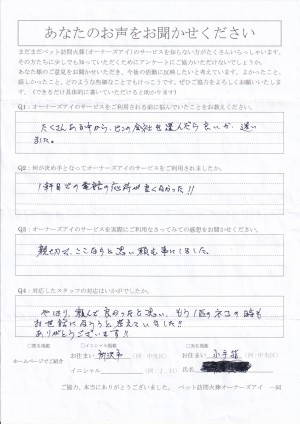 あなたのお声をお聞かせください
まだまだペット訪問火葬(オーナーズアイ)のサービスを知らない方がたくさんいらっしゃいます。
その方たちに少しでも知っていただくためにアンケートにご協力いただけないでしょうか。
あなた様のご意見をお聞かせいただき、今後の活動に反映したいと考えています。よかったこと、
嬉しかったこと、どのような些細なことでもけっこうです。ぜひご協力をよろしくお願いいたします。
(できるだけ具体的に書いていただけると助かります)
Q1:オーナーズアイのサービスをご利用される前に悩んでいたことをお教えください。
たくさんある中から、どこの会社を選んだら良いか、迷い
ました。
Q2:何が決め手となってオーナーズアイのサービスをご利用されましたか。
1軒目での電話の応対が良くなかった!!
Q3:オーナーズアイのサービスを実際にご利用なさってみての感想をお聞かせください。
親切で、ここならと思い頼む事にしました。
Q4:対応したスタッフの対応はいかがでしたか。
やはり、頼んで良かったと思い、もう1匹のネコの時も
お世話になろうと考えていました!!
ありがとうございます!!
□匿名掲載 □イニシャル掲載 □実名掲載
お住まい 所沢市 (例:中央区) お住まい (例:中央区)
ホームページでご紹介
イニシャル (例:J.H) 氏名
ご協力、本当にありがとうございました。 ペット訪問火葬オーナーズアイ 一同